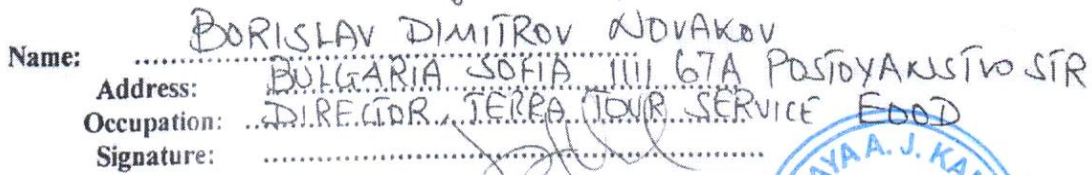 Name: BORISLAV DIMITROV NOVAKOV
Address: BULGARIA SOFIA 1111 67A POSTOYANSTVO STR
Occupation: DIRECTOR, TERRA TOUR SERVICE EOOD
Signature:
A. J.